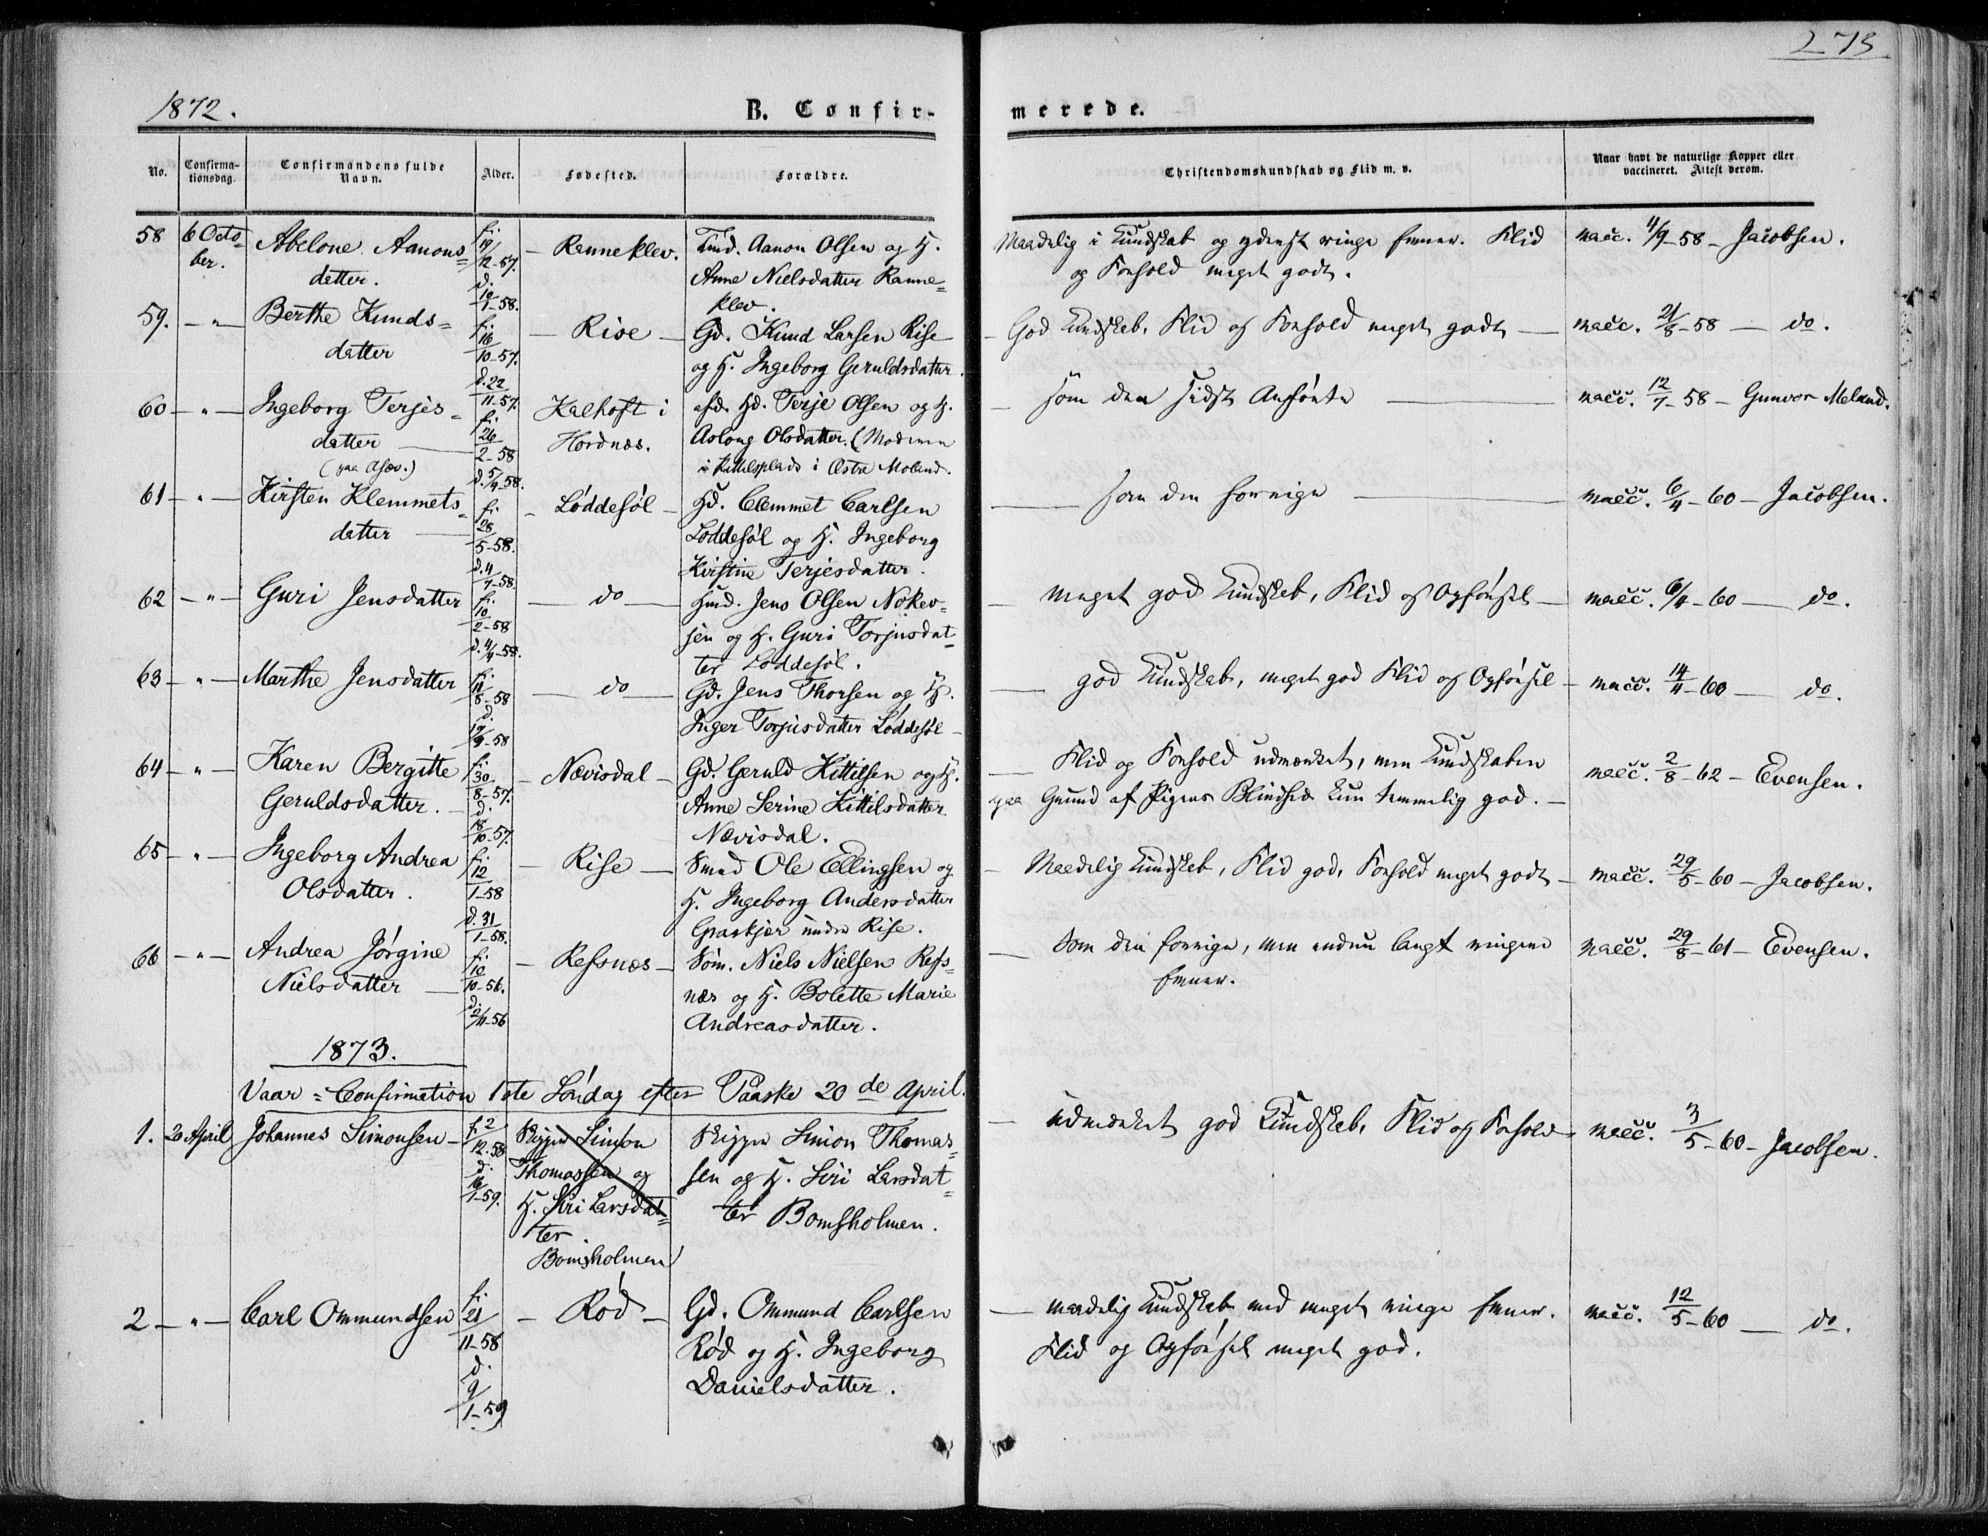 273
1872.
B. Confir-
merede.
No.
Confirma-
tionsdag.
Confirmandens fulde
Navn.
Alder.
Fødested.
Forældre.
Christendomskundskab og Flid m. v.
Naar havt de naturlige Kopper eller
vaccineret. Attest derom.
58 6 Octo- Abelone Aanons= f. 19/12-57. — Ranneklev. Hmd. Aanon Olsen og H. Maadelig i Kundskab og yderst ringe Evner. Flid vacc. 11/9-58 — Jacobsen.
ber. datter. d. 10/1-58. Anne Nielsdatter Ranne= og Forhold meget godt.
klev.
59. — " — Berthe Knuds= f. 16/10-57. — Rise — Gd. Knud Larsen Rise God Kundskab, Flid og Forhold meget godt — vacc. 21/8-58 — do.
datter d. 22/11-57. og H. Ingeborg Geruldsdatter.
60 — " — Ingeborg Terjes= f. 26/2-58 Kalhoft i afd. Hd. Terje Olsen og H. — Som den sidst Anførte — vacc. 12/7-58 — Gunvor Meland.
datter d. 5/4-58. Hordnæs. Asloug Olsdatter. (Moderen
(paa Asev.) i Kittelsplads i Østre Moland.
61 — " — Kirsten Klemmets= f. 28/5-58. — Løddesøl — Hd. Clemmet Carlsen — som den forrige — vacc. 6/4-60 — Jacobsen.
datter d. 4/7-58. Løddesøl og H. Ingeborg
Kirstine Terjesdatter.
62 — " — Guri Jensdatter f. 10/2-58 — do — Hmd. Jens Olsen Nokev= — meget god Kundskab, Flid og Opførsel — vacc. 6/4-60 — do.
d. 4/4-58. sen og H. Guri Torjusdat=
ter Løddesøl.
63 — " — Marthe Jensdatter f. 11/8-58 — do — Gd. Jens Thorsen og H. — god Kundskab, meget god Flid og Opførsel — vacc. 14/4-60 — do.
d. 17/9-58 Inger Torjusdatter Løddesøl
64 — " — Karen Bergitte f. 30/8-57. — Nævisdal — Gd. Geruld Kittilsen og H. — Flid og Forhold udmærket, men Kundskaben vacc. 2/8-62 — Evensen.
Geruldsdatter. d. 18/10-57. Anne Serine Kittilsdatter paa Grund af Pigens Blindhed kun temmelig god. —
Nævisdal.
65 — " — Ingeborg Andrea f. 12/1-58 — Rise — Smed Ole Ellingsen og — Maadelig Kundskab, Flid god, Forhold meget godt — vacc. 29/5-60 — Jacobsen.
Olsdatter. d. 31/1-58. H. Ingeborg Andersdatter
Graskjær under Rise.
66 — " — Andrea Jørgine f. 10/10-56. — Refsnæs — Søm. Niels Nielsen Refs= — Som den forrige, men endnu langt ringere vacc. 29/8-61 — Evensen.
Nielsdatter — d. 2/11-56 næs og H. Bolette Marie Evner.
Andreasdatter.
1873.
Vaar=Confirmation 1ste Søndag efter Paaske 20de April.
1. 20 April Johannes Simonsen — f. 2/12-58 Skipper Simon Skipper Simon Thomas= — udmærket god Kundskab, Flid og Forhold vacc. 3/5-60 — Jacobsen.
d. 16/1-59. Thomassen og sen og H. Siri Larsdat=
H. Siri Larsdat= ter Bomsholmen.
ter
Bomsholmen
2 — " — Carl Ommundsen f. 21/11-58 — Rød — Gd. Ommund Carlsen — maadelig Kundskab med meget ringe Evner. vacc. 12/5-60 — do.
d. 9/1-59 Rød og H. Ingeborg Flid og Opførsel meget god.
Danielsdatter.